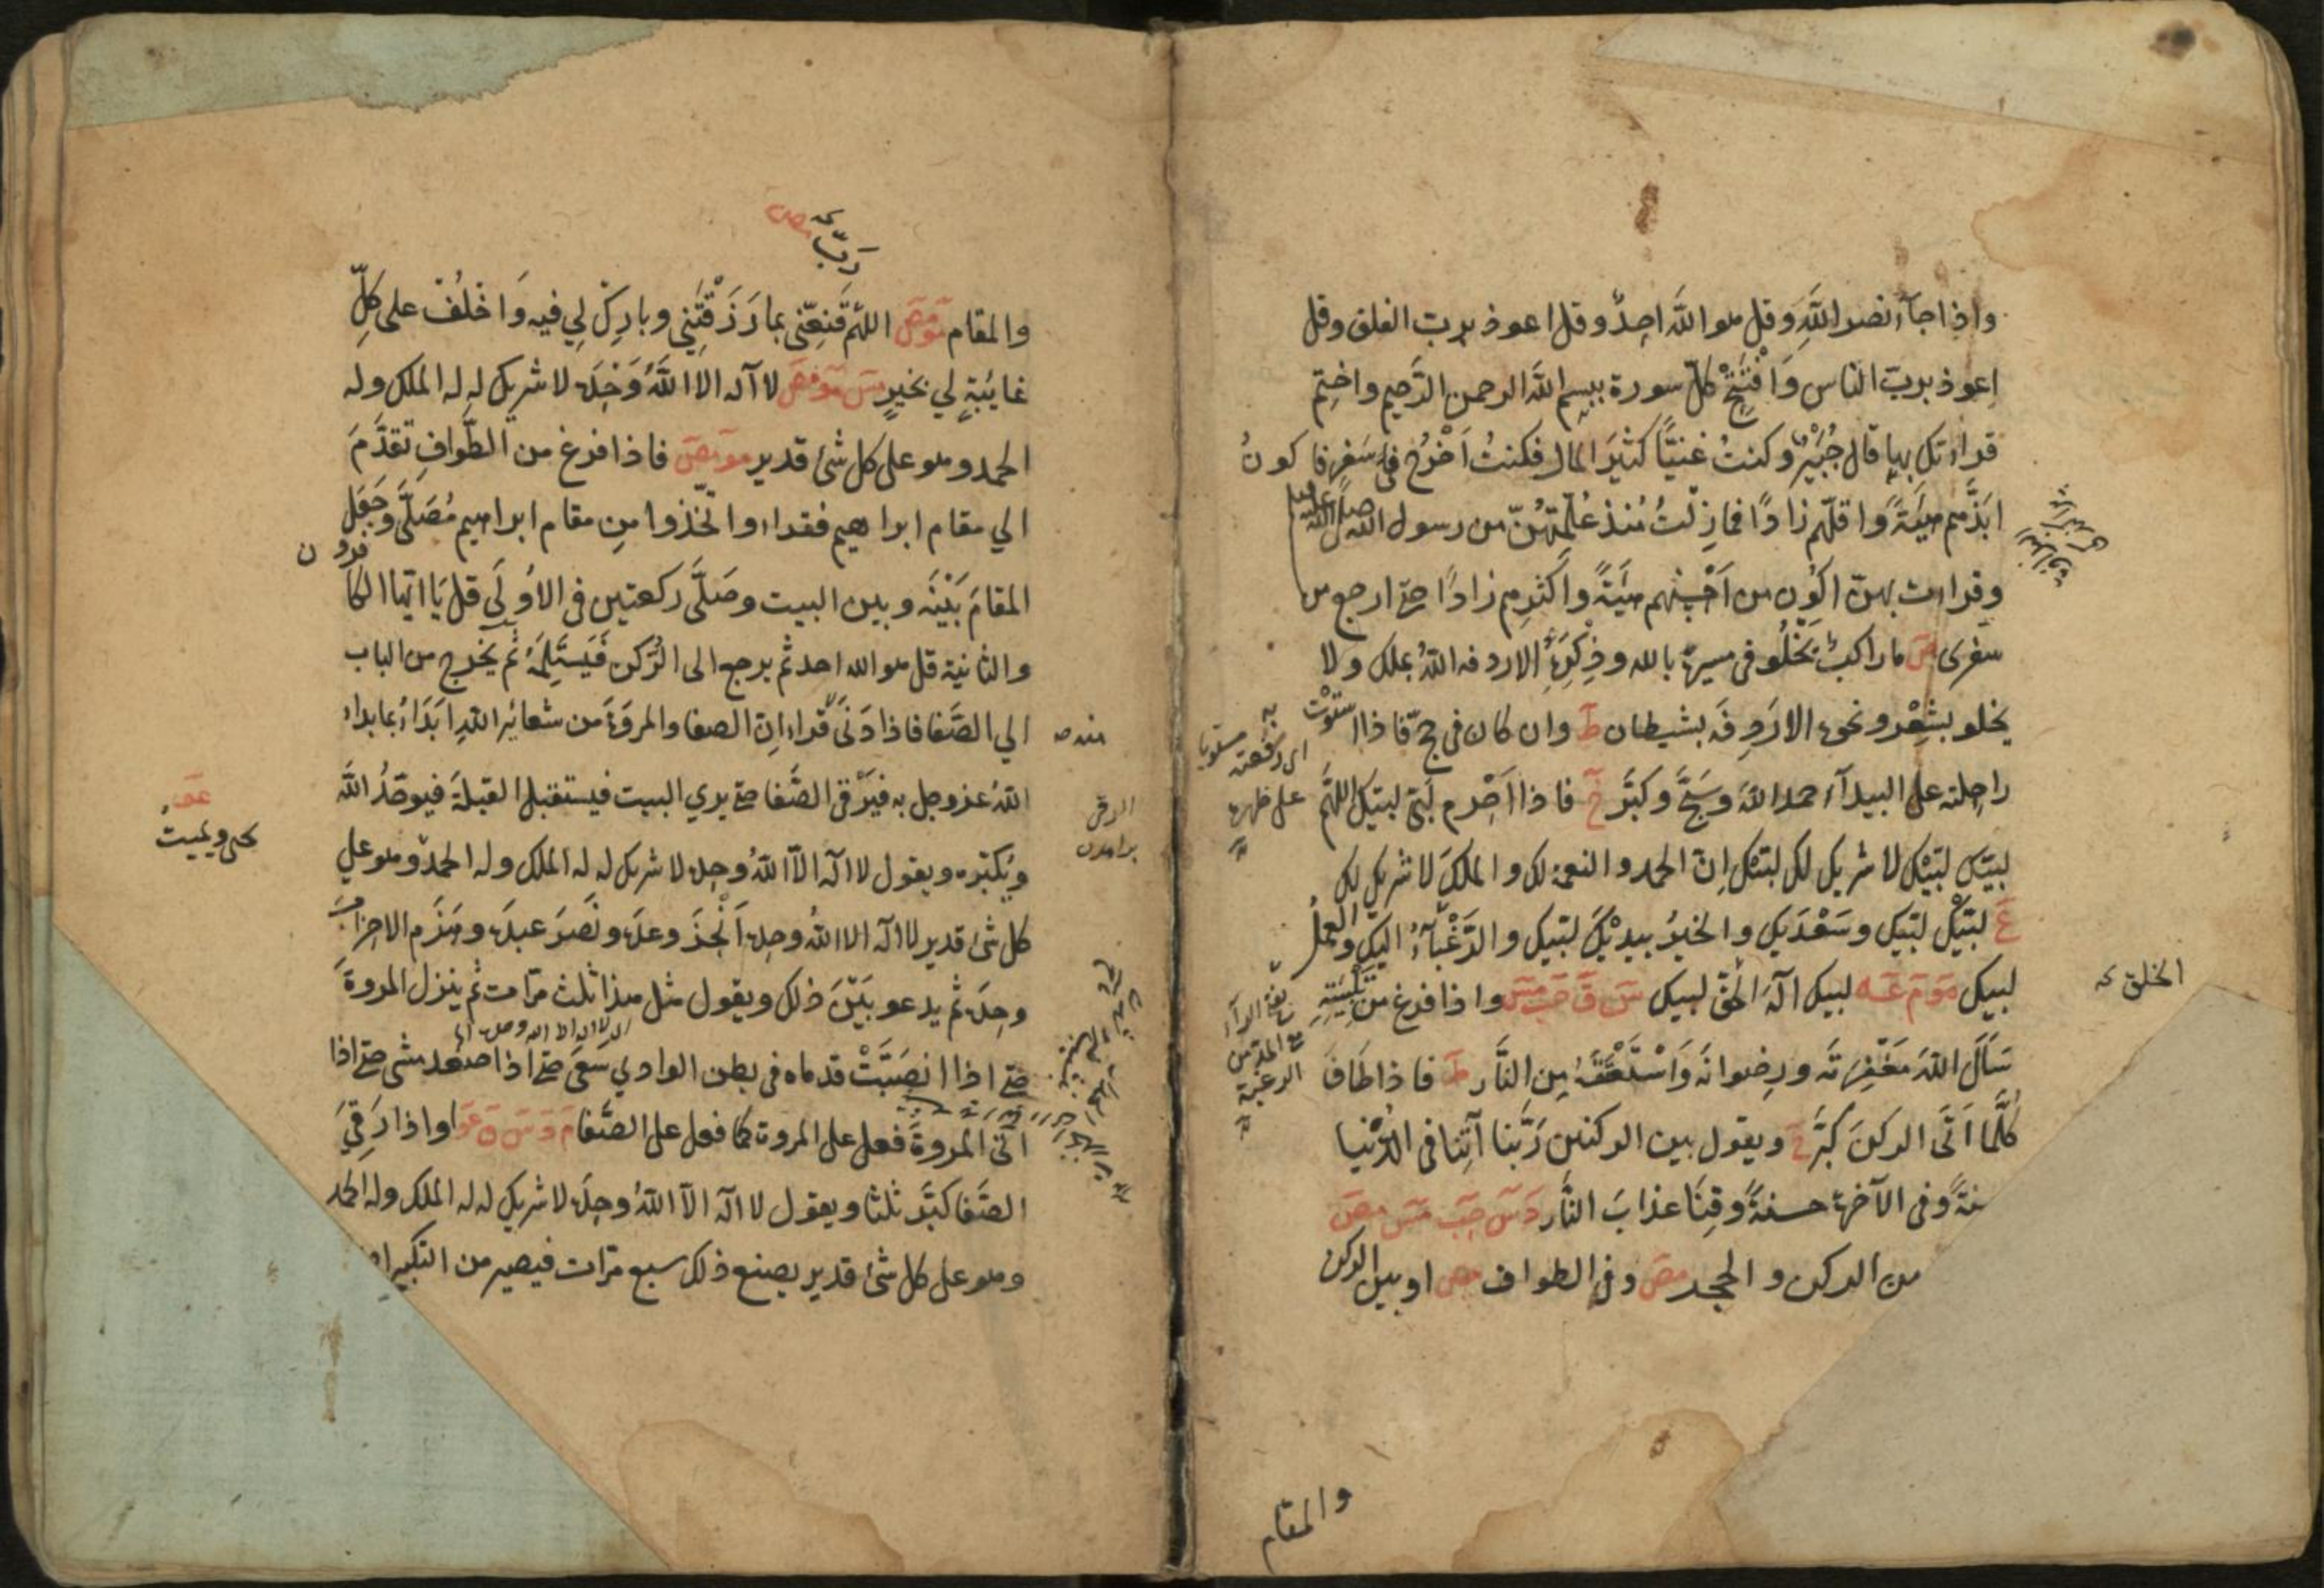 واذا جآء نصر اللَّهِ وقل هو اللَّه احدٌ وقل اعوذ برب الفلق وقل
اعوذ بربّ الناس وَافْتَتِحْ كلّ سورة ببسمِ اللَّه الرحمن الرَّحيم واختِم
قراءتك بها قال جُبَيْرٌ وكنتُ غنيًّا كثيرَ المال فكنتُ اَخْرُج فى سَفرٍ فاكونُ
ابَذَّهم هيئَةً واقلّهم زادًا فمازِلْتُ مُنذ عُلِّمْتُهُنّ من رسول الله صلى الله عليه
وقراءت بهنّ اكُون من اَحْسنِهم هيئَةً واكثرِهم زادًا حتى ارجع من
سفرى صَ ما راكبٌ يَخْلُو فى مسيرهِ بالله وذِكرِهِ الا ردفه اللهُ بملك ولا
يخلو بشِعْرٍ ونحوهِ الا رَدِفَه بشيطان طَ وان كان فى حجّ فاذا استَوَتْ به
راحِلته على البيدآء حمد اللهَ وسَبَّح وكبَّر خَ فاذا اَحْرم لَبَّى لبيّك اللهمَّ
لبيّك لبّيْك لا شريك لك لبّيْك اِنّ الحمد والنعمة لك والملكَ لا شريك لك
عَ لبّيْك لبّيك وسَعْدَيك والخيرُ بيديْكَ لبّيك والرَّغْبآءُ اليك والعملُ
لبيك مَوَ مَ عَه لبيك الهَ الحقِّ لبيك سَ قَ حَب مَس واذا فرغ من تَلْبِيَتِهِ
سَاَلَ اللهَ مَغْفِرَتَه ورِضوانَه وَاسْتَعْتَقَهُ مِن النَّار طَ فاذا طَافَ
كُلَّما اَتَى الركنَ كَبَّر خَ ويقول بين الركنين رَبَّنا آتِنا فى الدُّنيا
سنةً وفى الآخرةِ حسنةً وقِنَا عذابَ النَّار دَ سَ حَب مَس مصَ
من الركن والحجر مصَ وفى الطواف مص او بين الركن
الخلق
اى رفعته مستويا
على ظهرها
والمقام
ربّ مص
والمقام مَو مَص اللهمّ قَنِّعْنى بما رَزَقْتَنِي وبارِكْ لِي فيه وَاخْلُفْ على كلِّ
غائبةٍ لي بخيرٍ مَس مَو مَص لا اله الا اللَّهُ وَحْدَهُ لا شريك له له الملك وله
الحمد وهو على كل شئ قدير مو مَص فاذا فرغ من الطَّوافِ تقدَّمَ
الي مقام ابراهيم فقراء واتّخذوا مِن مقام ابراهيم مُصَلَّى وجَعَل
المقامَ بَيْنَه وبين البيت وصَلَّى ركعتين فى الاُولَي قل يَا ايّها الكافرون
والثانية قل هو الله احد ثم يرجع الى الرُكن فَيَستَلِمَهُ ثم يخرج من الباب
الي الصَّفا فاذا دَنَى قراء اِنّ الصفا والمروَةَ من شعائِرِ اللهِ ابَدَأُ بما بداء
اللهُ عز وجل به فيَرْقَى الصَّفا حتى يري البيت فيستقبل القبلةَ فيوحّدُ اللَّه
ويُكبّره ويقول لا اله الّا اللهُ وحدهُ لا شريك له له الملك وله الحمد وهو على
كل شئ قدير لا اله الا اللهُ وحدهُ اَنْجزَ وعدَهُ ونَصَرَ عبدَه وهزَم الاحزابَ
وحدَه ثم يدعو بَيْنَ ذلك ويقول مثل هذا ثلث مرّات ثم ينزل المروةَ
حتى اذا انصَبَّتْ قدماه فى بطن الوادي سَعَى حتى اذا صَعد مشى حتى اذا
اَتَى المروةَ فعل على المروة كما فعل على الصَّفا مَ دَ سَ قَ عَو واذا رَقِيَ
الصَّفا كبَّر ثلثا ويقول لا اله الّا اللهُ وحدَه لا شريك له له الملك وله الحمد
وهو على كل شئ قدير يصنع ذلك سبع مرّات فيصير من التكبير
عَو
يحيى ويميتُ